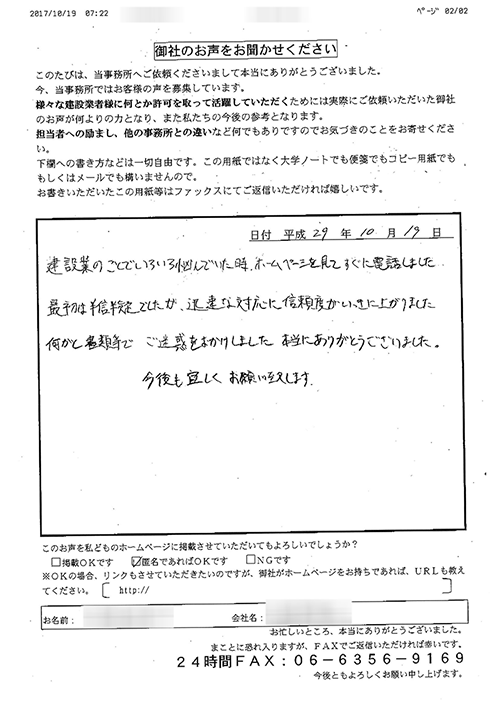 2017/10/19 07:22 ﾍﾟｰｼﾞ 02/02
御社のお声をお聞かせください
このたびは、当事務所へご依頼くださいまして本当にありがとうございました。
今、当事務所ではお客様の声を募集しています。
様々な建設業者様に何とか許可を取って活躍していただくためには実際にご依頼いただいた御社
のお声が何よりの力となり、また私たちの今後の参考となります。
担当者への励まし、他の事務所との違いなど何でもありですのでお気づきのことをお寄せくださ
い。
下欄への書き方などは一切自由です。この用紙ではなく大学ノートでも便箋でもコピー用紙でも
もしくはメールでも構いませんので。
お書きいただいたこの用紙等はファックスにてご返信いただければ嬉しいです。
日付 平成 29 年 10 月 19 日
建設業のことでいろいろ悩んでいた時、ホームページを見てすぐに電話しました
最初は半信半疑でしたが、迅速な対応に信頼度がいっきに上がりました
何かと書類等で ご迷惑をおかけしました 本当にありがとうございました。
今後も宜しく お願い致します。
このお声を私どものホームページに掲載させていただいてもよろしいでしょうか？
□掲載ＯＫです ☑匿名であればＯＫです □ＮＧです
※ＯＫの場合、リンクもさせていただきたいのですが、御社がホームページをお持ちであれば、ＵＲＬも教え
てください。〔 http:// 〕
お名前： 会社名：
お忙しいところ、本当にありがとうございました。
まことに恐れ入りますが、ＦＡＸでご返信いただければ幸いです。
２４時間ＦＡＸ：０６－６３５６－９１６９
今後ともよろしくお願い申し上げます。